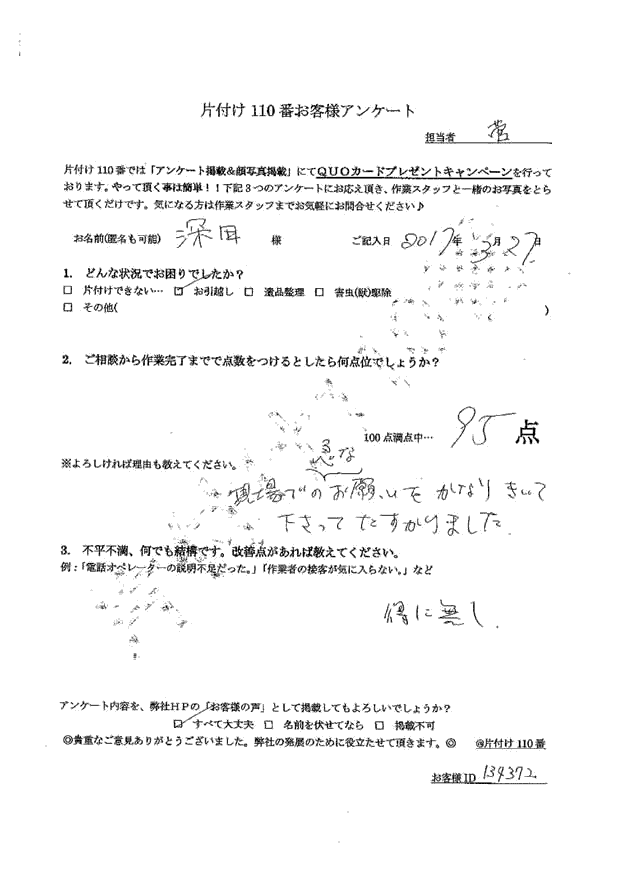 片付け110番お客様アンケート
担当者 菅
片付け110番では「アンケート掲載&顔写真掲載」にてQUOカードプレゼントキャンペーンを行って
おります。やって頂く事は簡単！！下記3つのアンケートにお応え頂き、作業スタッフと一緒のお写真をとら
せて頂くだけです。気になる方は作業スタッフまでお気軽にお問合せください♪
お名前(匿名も可能) 深田 様 ご記入日 2017年3月27日
1. どんな状況でお困りでしたか？
□ 片付けできない… ☑ お引越し □ 遺品整理 □ 害虫(獣)駆除
□ その他( )
2. ご相談から作業完了までで点数をつけるとしたら何点位でしょうか？
100点満点中… 95点
※よろしければ理由も教えてください。
急な
現場でのお願いをかなりきいて
下さってたすかりました.
3. 不平不満、何でも結構です。改善点があれば教えてください。
例：「電話オペレーターの説明不足だった。」「作業者の接客が気に入らない。」など
特に無し.
アンケート内容を、弊社HPの「お客様の声」として掲載してもよろしいでしょうか？
☑ すべて大丈夫 □ 名前を伏せてなら □ 掲載不可
◎貴重なご意見ありがとうございました。弊社の発展のために役立たせて頂きます。◎ @片付け110番
お客様ID 134372